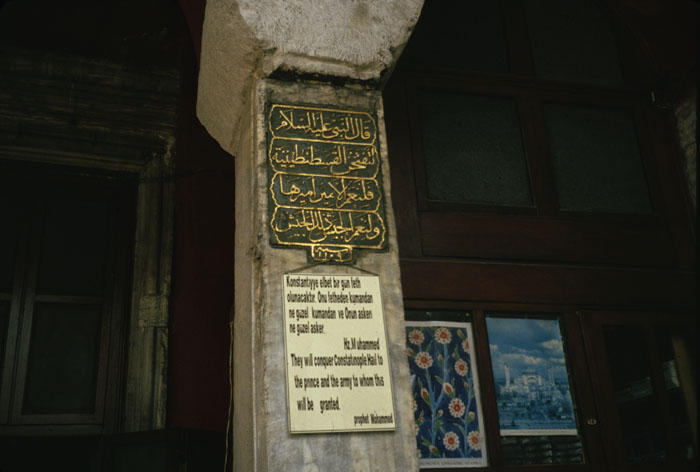 قال النبي عليه السلام
لتفتحن القسطنطينية
فلنعم الامير اميرها
ولنعم الجيش ذلك الجيش
سنة
Konstantıyye elbet bir gün feth
olunacaktır. Onu fetheden kumandan
ne güzel kumandan ve Onun asken
ne güzel asker.
Hz.M uhammed
They will conquer Constatınople.Hail to
the prince and the army to whom this
will be granted.
prophet Muhammed